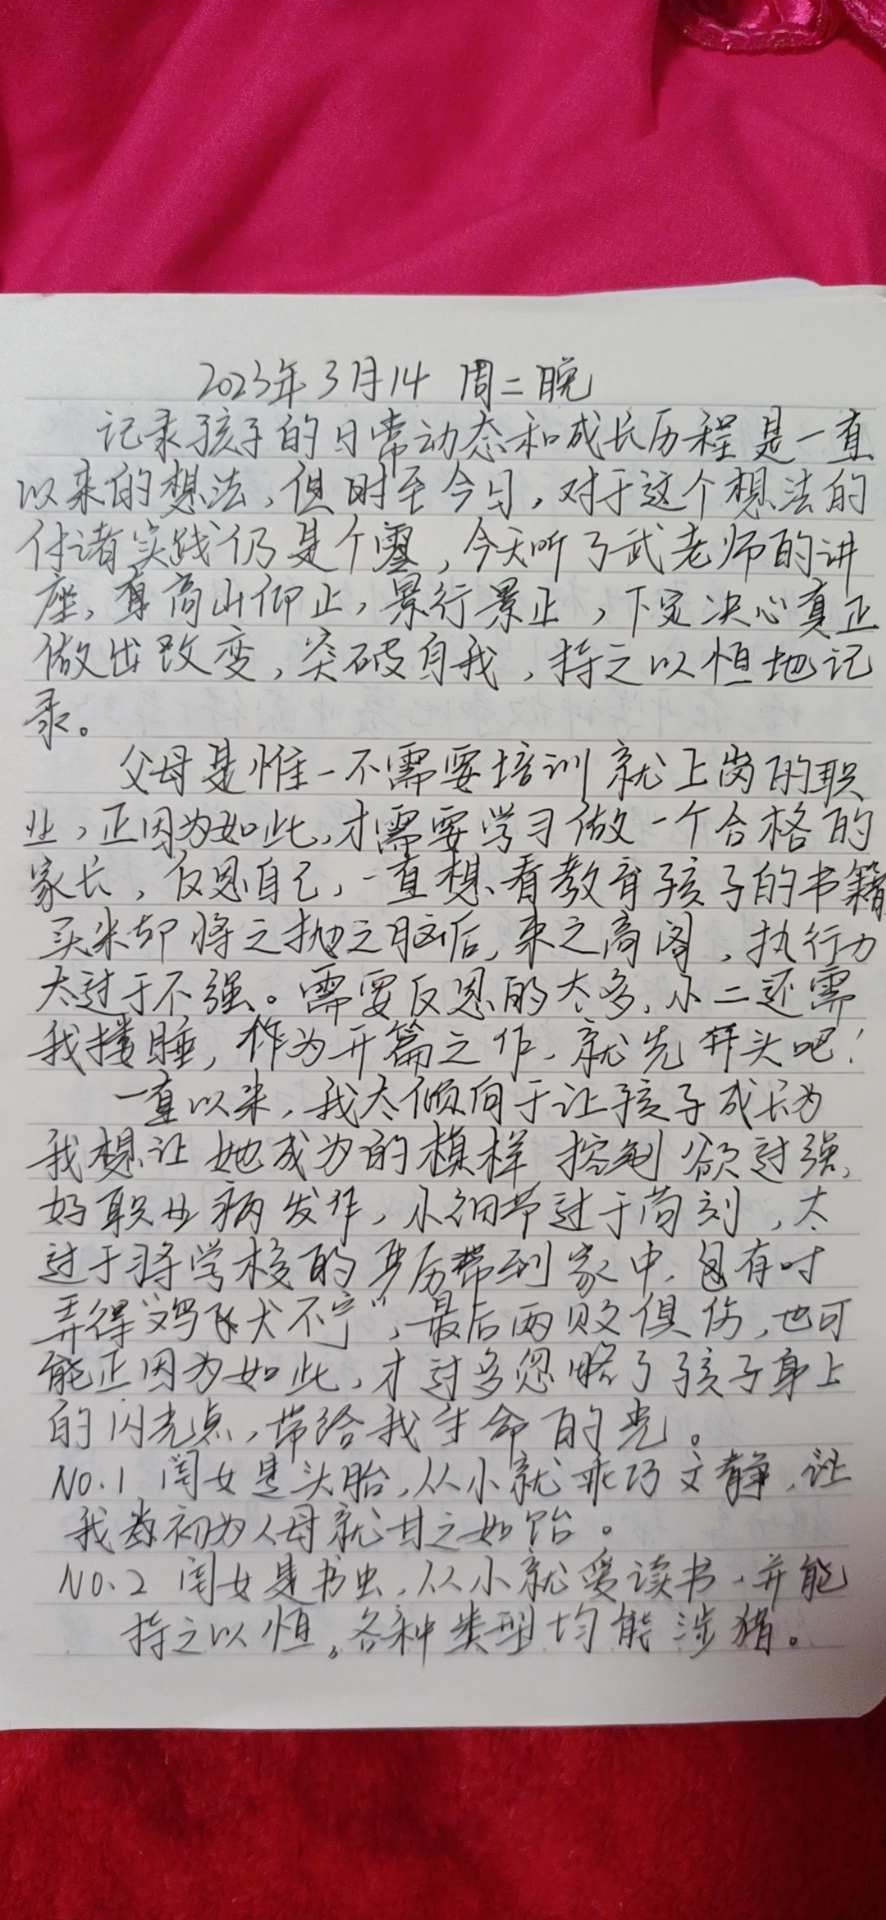 2023年3月14 周二晚
记录孩子的日常动态和成长历程是一直
以来的想法,但时至今日,对于这个想法的
付诸实践仍是个零,今天听了武老师的讲
座,高山仰止,景行景止,下定决心真正
做出改变,突破自我,持之以恒地记
录。
父母是惟一不需要培训就上岗的职
业,正因为如此,才需要学习做一个合格的
家长,反思自己,一直想看教育孩子的书籍
买来却将之抛之脑后,束之高阁,执行力
太过于不强。需要反思的太多,小二还需
我搂睡,作为开篇之作,就先开头吧!
一直以来,我太倾向于让孩子成长为
我想让她成为的模样 控制欲过强,
好职业病发作,小细节过于苛刻,太
过于将学校的严厉带到家中,有时
弄得“鸡飞犬不宁”,最后两败俱伤,也可
能正因为如此,才过多忽略了孩子身上
的闪光点,带给我生命的光。
NO.1 闺女是头胎,从小就乖巧文静,让
我当初为人母就甘之如饴。
NO.2 闺女是书虫,从小就爱读书,并能
持之以恒。各种类型均能涉猎。